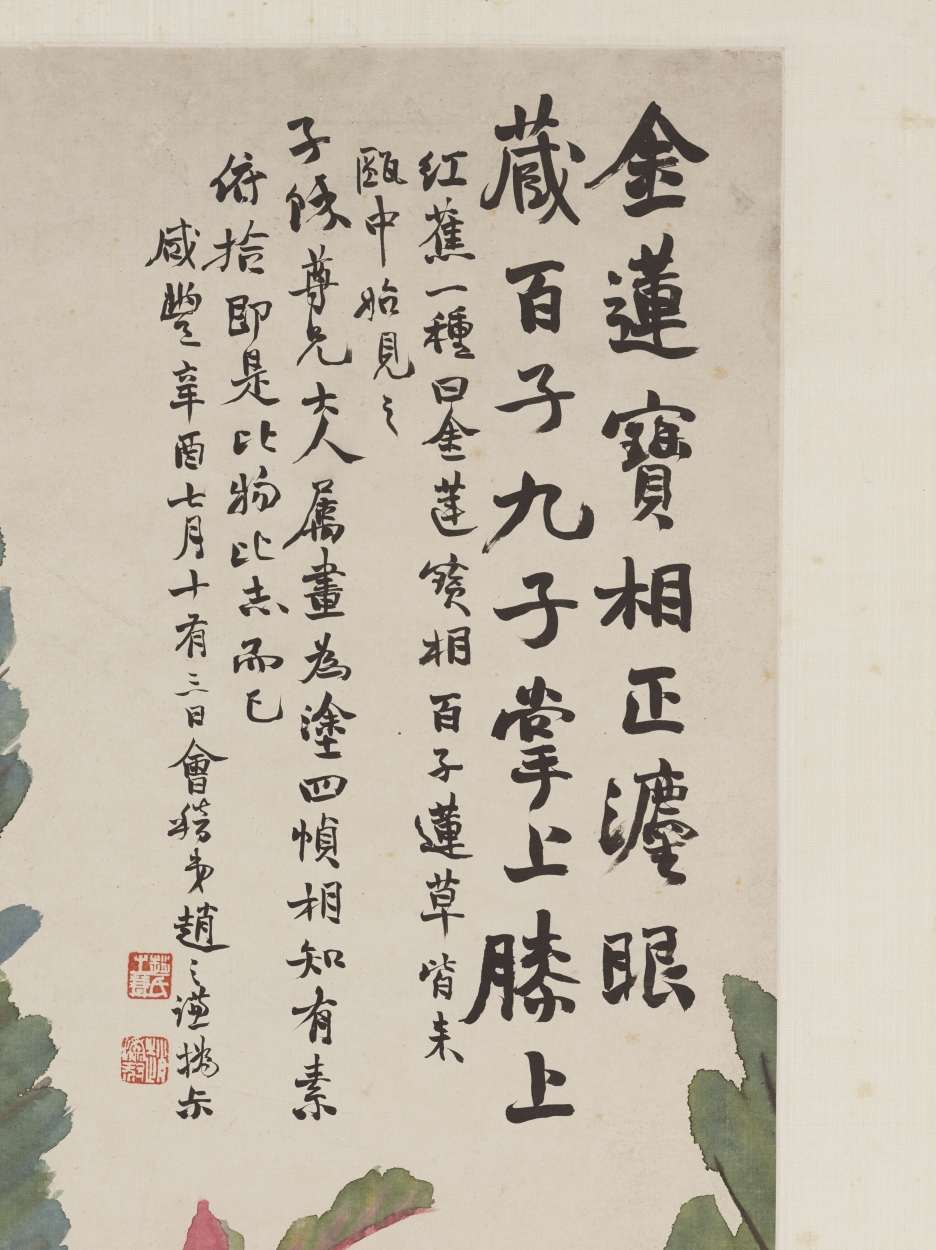 金蓮寶相正灋眼
藏百子九子掌上膝上
紅蕉一種曰金蓮寶相百子蓮草皆来
甌中始見之
子尊兄大人屬畫為塗四幀相知有素
俯拾即是比物比志而已
咸豐辛酉七月十有三日會稽弟趙之謙撝尗